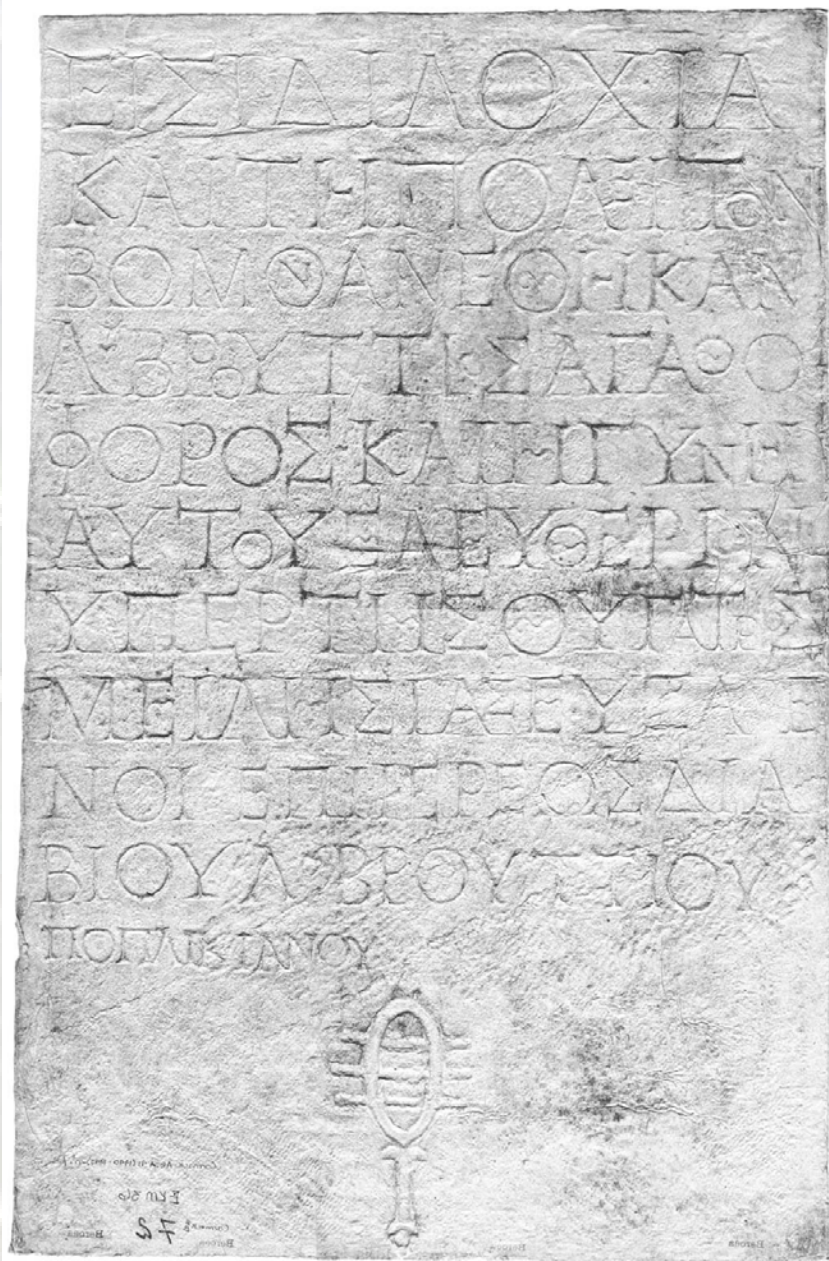 ΕΙΣΙΔΙΛΟΧΙΑ
ΚΑΙΤΗΠΟΛΕΙΤΟΝ
ΒΟΜΟΝΑΝΕΘΗΚΑΝ
Λ ΒΡΟΥΤΤΙΟΣΑΓΑΘΟ
ΦΟΡΟΣΚΑΙΗΓΥΝΗ
ΑΥΤΟΥΕΛΕΥΘΕΡΙΝ
ΥΠΕΡΤΗΣΘΥΓΑΤΡΟΣ
ΜΕΙΛΗΣΙΑΣΕΥΞΑΜΕ
ΝΟΙ ΕΠΙΙΕΡΕΟΣΔΙΑ
ΒΙΟΥ Λ ΒΡΟΥΤΤΙΟΥ
ΠΟΠΛΙΚΙΑΝΟΥ
EKM 36
72
Beroea Beroea Beroea Beroea